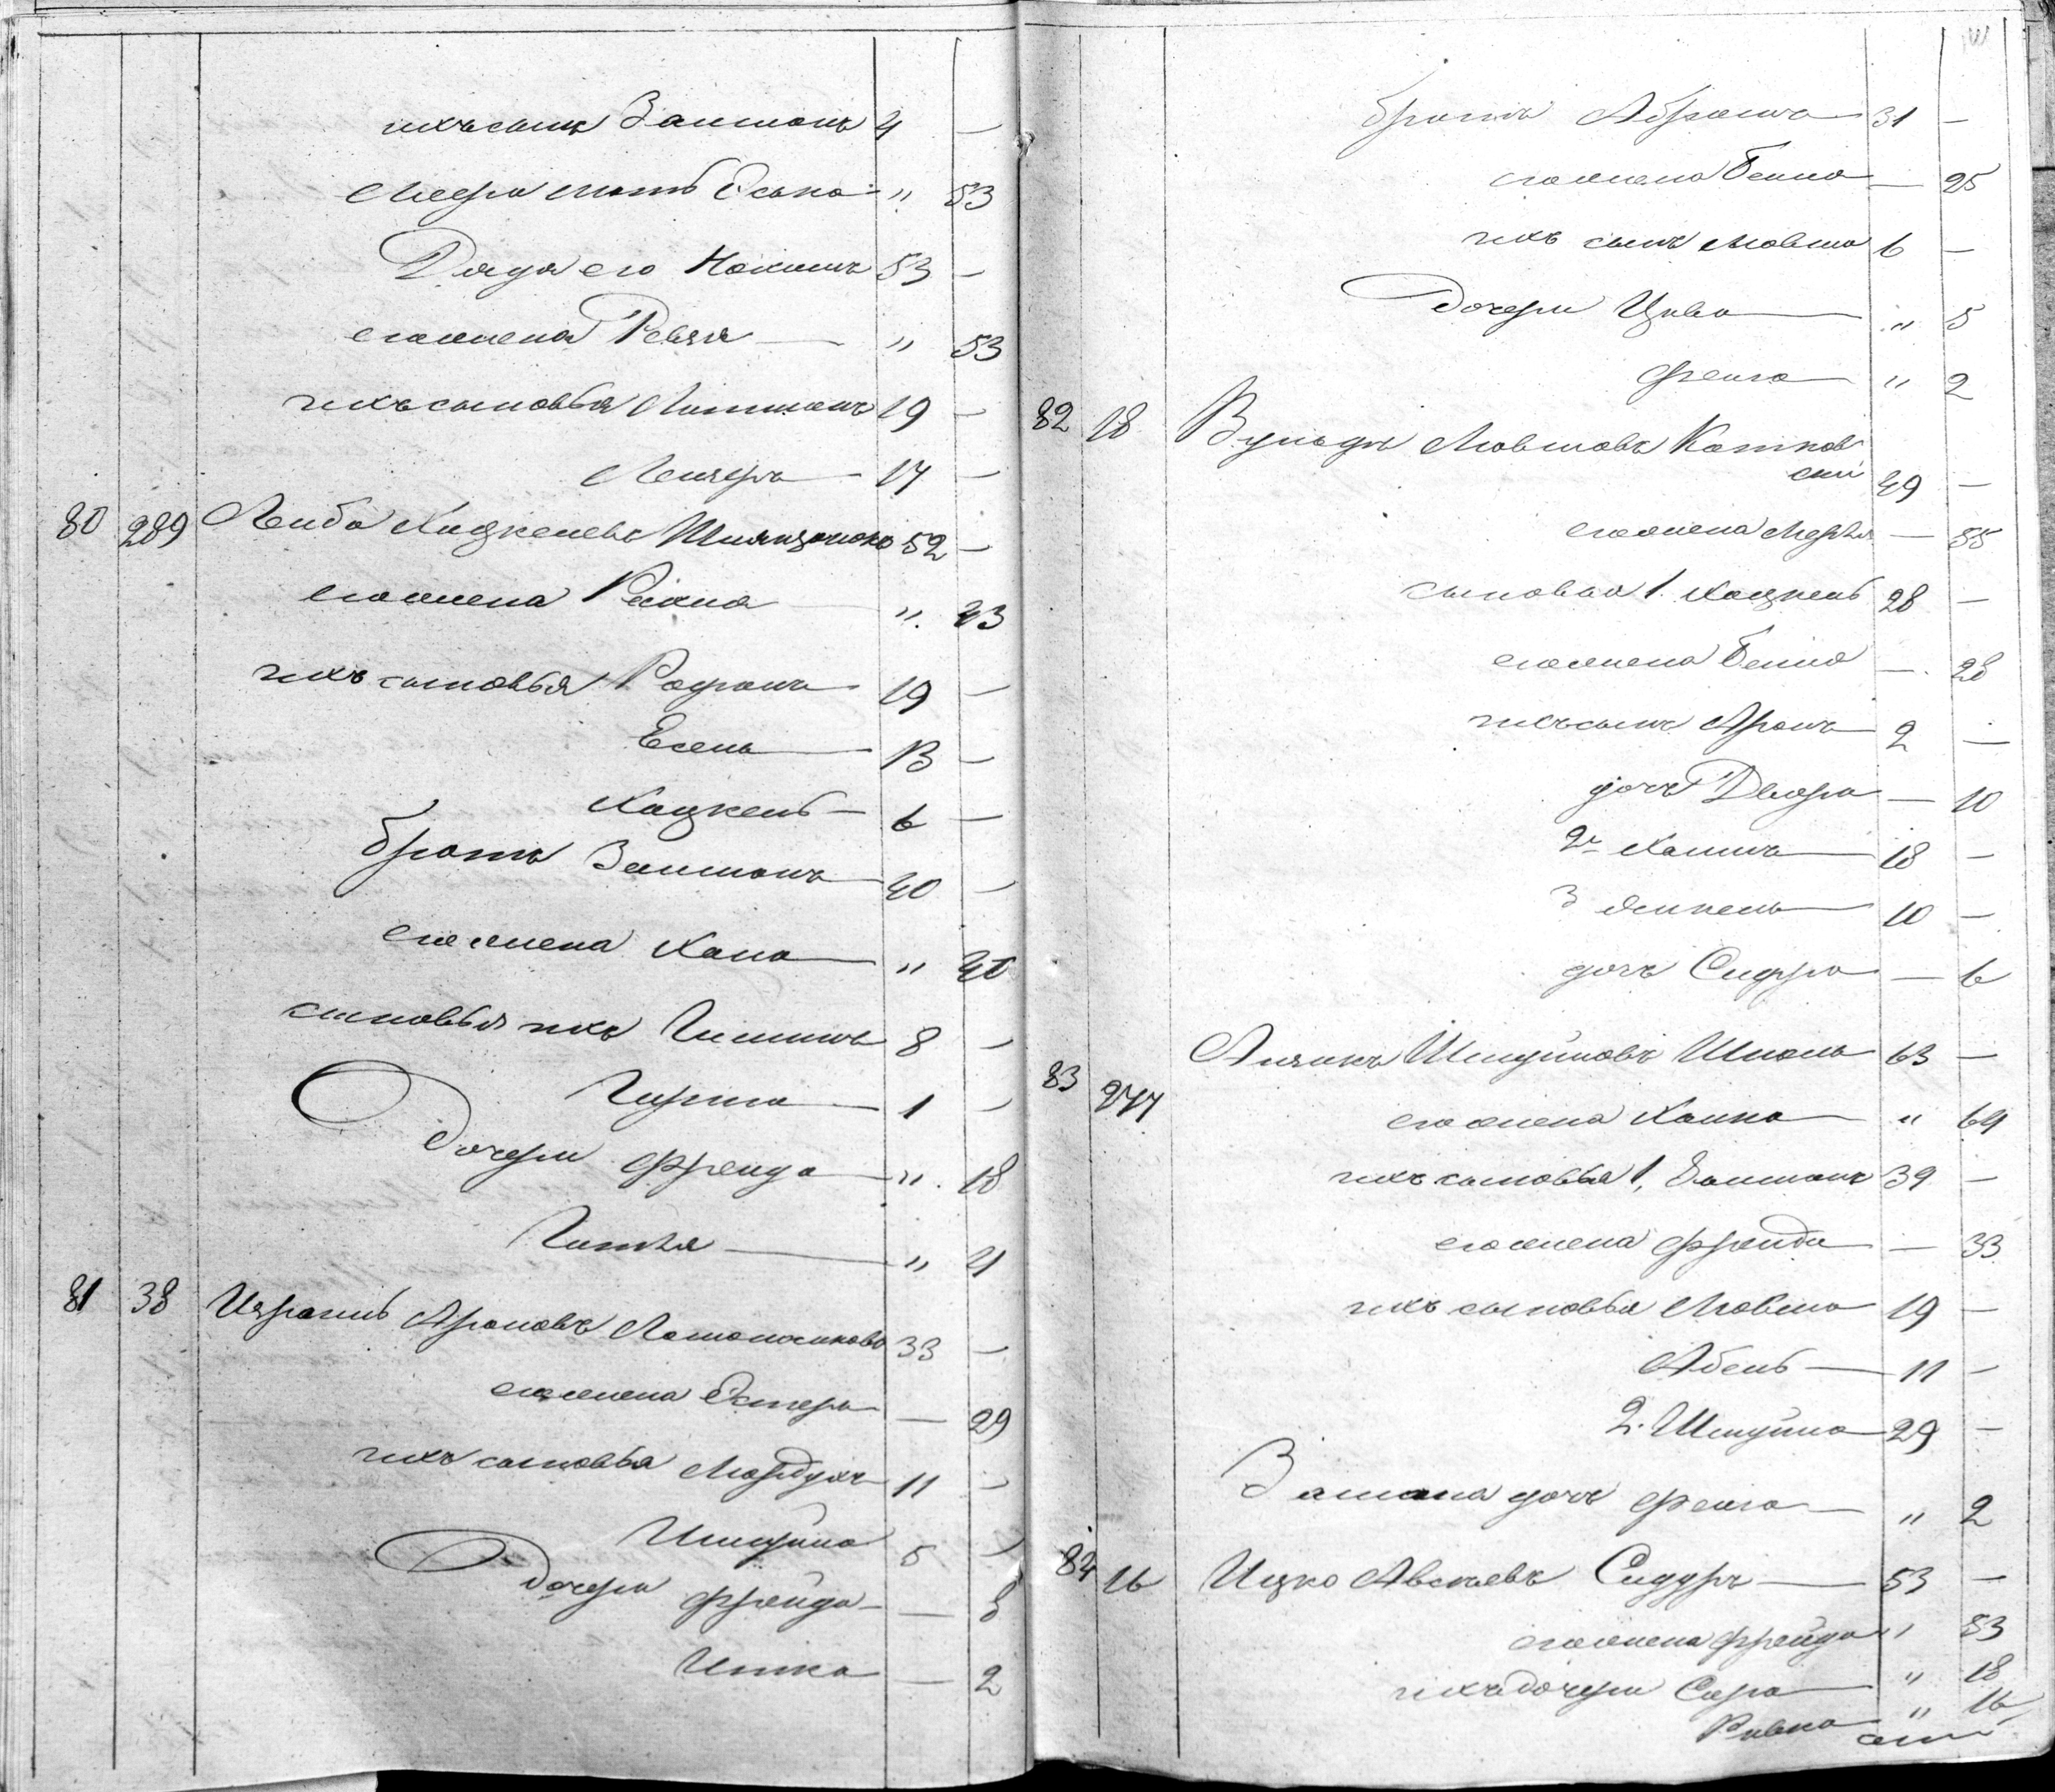 ихъ сынъ Залманъ 4 —
Меера мать Еська " 53
Дядя его Нохимъ 53 —
его жена Ревля — " 53
ихъ сыновья Литманъ 19 —
Лейзеръ — 17 —
80 289 Лейба Хацкелевъ 52 —
его жена Рейза — " 43
ихъ сыновья 19 —
Есель — 13 —
Хацкель — 6 —
братъ Залманъ — 40 —
его жена Хана — " 40
сыновья ихъ 8 —
Гирша — 1 —
Дочери Фрейда — " 18
Гитля — " 4
81 38 Израиль Ароновъ 33 —
его жена Эстеръ — 29
ихъ сыновья Мордухъ 11 —
Шмуйла 5 —
Дочери Фрейда — 8
Итка — 2
братъ Абрамъ 31 —
его жена Бейла — 25
ихъ сынъ Мовша 6 —
Дочери Цива — " 5
Фейга — " 2
82 18 Вульфъ Мовшовъ Котков
скій 49 —
его жена Мерля — 55
сыновья 1. Хацкель 28 —
его жена Бейла — 28
ихъ сынъ Аронъ 2 —
дочь Двейра — 10
2й Хаимъ — 18 —
3 Янкель — 10 —
дочь Сифра — 6
83 277 Айзикъ Шмуйловъ Школь 63 —
его жена Хайка — " 64
ихъ сыновья 1. Залманъ 39 —
его жена Фрейда — 33
ихъ сыновья Мовша 19 —
Абель — 11 —
2. Шмуйла — 29 —
Залмана дочь Фейга — " 2
84 16 Ицко Авсеевъ Сидуръ — 53 —
его жена Фрейда " 53
ихъ дочери Сора — " 18
Ривка — " 16